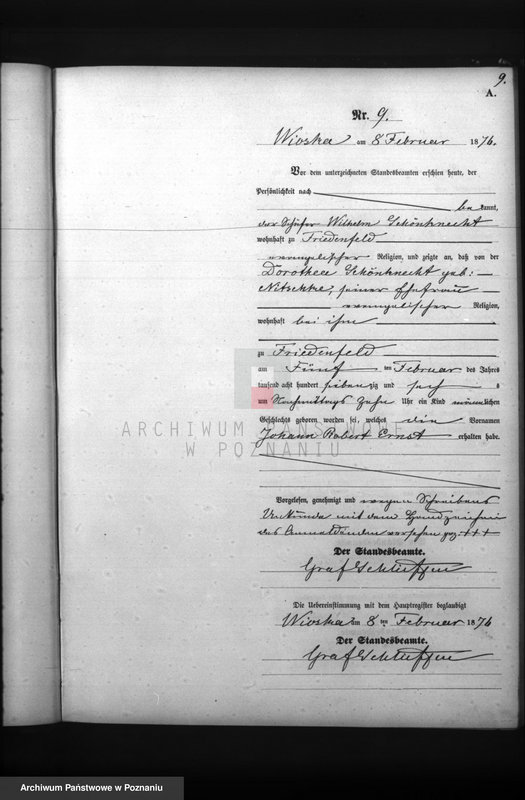 9.
A.
Nr. 9.
Wioska am 8 Februar 1876.
Vor dem unterzeichneten Standesbeamten erschien heute, der
Persönlichkeit nach
bekannt,
der Schäfer Wilhelm Schönknecht
wohnhaft zu Friedenfeld
evangelischer Religion, und zeigte an, daß von der
Dorothea Schönknecht geb:
Nitschke, seiner Ehefrau
evangelischer Religion,
wohnhaft bei ihm
zu Friedenfeld
am Fünf ten Februar des Jahres
tausend acht hundert siebenzig und sech s
um Nachmittags Zehn Uhr ein Kind männlichen
Geschlechts geboren worden sei, welches die Vornamen
Johann Robert Ernst erhalten habe.
ARCHIWUM PAŃSTWOWE
W POZNANIU
Vorgelesen, genehmigt und wegen Schreibens
Unkunde mit dem Handzeichen
des Anmeldenden versehen gez: +++
Der Standesbeamte.
Graf
Die Uebereinstimmung mit dem Hauptregister beglaubigt
Wioska am 8 ten Februar 1876
Der Standesbeamte.
Graf
Archiwum Państwowe w Poznaniu